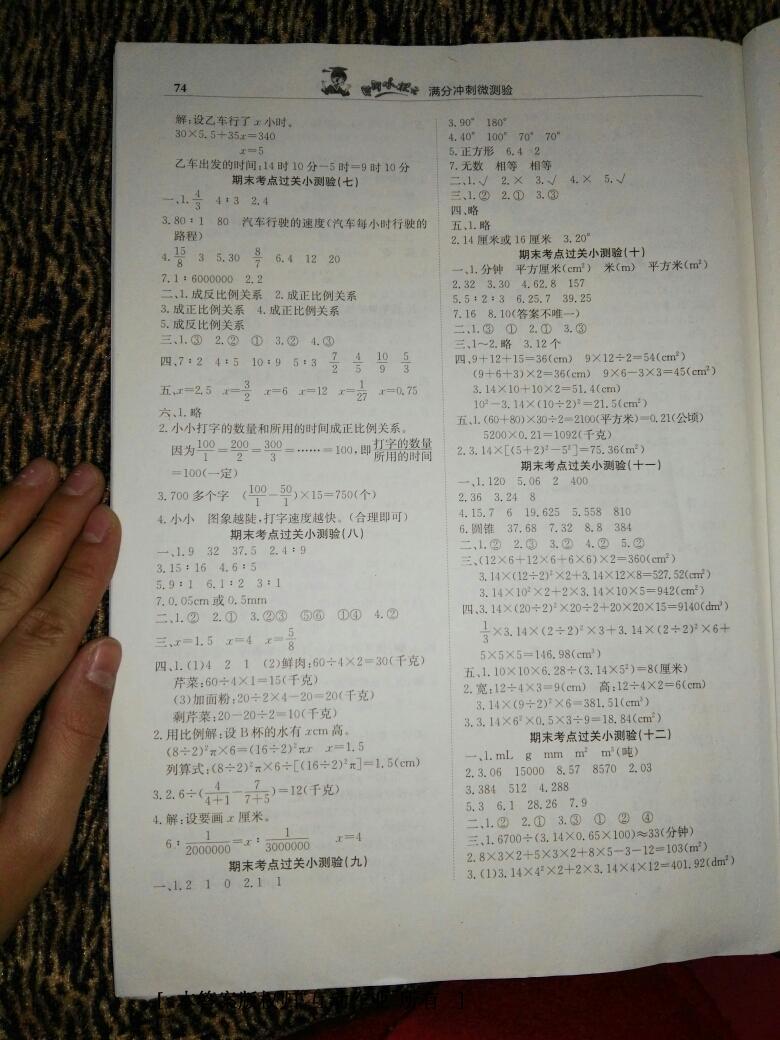 74
满分冲刺微测验
解:设乙车行了 x 小时。
30×5.5+35x=340
x=5
乙车出发的时间:14 时 10 分-5 时=9 时 10 分
期末考点过关小测验(七)
一、1. 4/3 4∶3 2.4
3.80∶1 80 汽车行驶的速度(汽车每小时行驶的
路程)
4. 15/8 3 5.30 8/7 6.4 12 20
7.1∶6000000 2.2
二、1.成反比例关系 2.成正比例关系
3.成正比例关系 4.成正比例关系
5.成反比例关系
三、1.③ 2.② ① 3.② 4.③
四、7∶2 4∶5 10∶9 5∶3 7/2 4/5 10/9 5/3
五、x=2.5 x=3/2 x=6 x=12 x=1/27 x=0.75
六、1.略
2.小小打字的数量和所用的时间成正比例关系。
因为100/1=200/2=300/3=……=100,即打字的数量/所用的时间
=100(一定)
3.700 多个字 (100/1-50/1)×15=750(个)
4.小小 图象越陡,打字速度越快。(合理即可)
期末考点过关小测验(八)
一、1.9 32 37.5 2.4∶9
3.15∶16 4.6∶5
5.9∶1 6.1∶2 3∶1
7.0.05cm 或 0.5mm
二、1.② 2.① 3.②③ ⑤⑥ ①④ 4.②
三、x=1.5 x=4 x=5/8
四、1.(1)4 2 1 (2)鲜肉:60÷4×2=30(千克)
芹菜:60÷4×1=15(千克)
(3)加面粉:20÷2×4-20=20(千克)
剩芹菜:20-20÷2=10(千克)
2.用比例解:设 B 杯的水有 xcm 高。
(8÷2)²π×6=(16÷2)²πx x=1.5
列算式:(8÷2)²π×6÷[(16÷2)²π]=1.5(cm)
3.2.6÷(4/4+1-7/7+5)=12(千克)
4.解:设要画 x 厘米。
6∶1/2000000=x∶1/3000000 x=4
期末考点过关小测验(九)
一、1.2 1 0 2.1 1
3.90° 180°
4.40° 100° 70° 70°
5.正方形 6.4 2
7.无数 相等 相等
二、1.√ 2.× 3.√ 4.× 5.√
三、1.② 2.① 3.③
四、略
五、1.略
2.14 厘米或 16 厘米 3.20°
期末考点过关小测验(十)
一、1.分钟 平方厘米(cm²) 米(m) 平方米(m²)
2.32 3.30 4.62.8 157
5.5∶2∶3 6.25.7 39.25
7.16 8.10(答案不唯一)
二、1.③ ① 2.① 3.③
三、1~2.略 3.12 个
四、9+12+15=36(cm) 9×12÷2=54(cm²)
(9+6+3)×2=36(cm) 9×6-3×3=45(cm²)
3.14×10+10×2=51.4(cm)
10²-3.14×(10÷2)²=21.5(cm²)
五、1.(60+80)×30÷2=2100(平方米)=0.21(公顷)
5200×0.21=1092(千克)
2.3.14×[(5+2)²-5²]=75.36(m²)
期末考点过关小测验(十一)
一、1.120 5.06 2 400
2.36 3.24 8
4.15.7 6 19.625 5.558 810
6.圆锥 37.68 7.32 8.8 384
二、1.② 2.③ 3.② 4.② 5.②
三、(12×6+12×6+6×6)×2=360(cm²)
3.14×(12÷2)²×2+3.14×12×8=527.52(cm²)
3.14×10²×2+2×3.14×10×5=942(cm²)
四、3.14×(20÷2)²×20÷2+20×20×15=9140(dm³)
1/3×3.14×(2÷2)²×3+3.14×(2÷2)²×6+
5×5×5=146.98(cm³)
五、1.10×10×6.28÷(3.14×5²)=8(厘米)
2.宽:12÷4×3=9(cm) 高:12÷4×2=6(cm)
3.14×(9÷2)²×6=381.51(cm³)
3.3.14×6²×0.5×3÷9=18.84(cm²)
期末考点过关小测验(十二)
一、1.mL g mm m² m³(吨)
2.3.06 15000 8.57 8570 2.03
3.384 512 4.288
5.3 6.1 28.26 7.9
二、1.② 2.① 3.③ ① ② ④
三、1.6700÷(3.14×0.65×100)≈33(分钟)
2.8×3×2+5×3×2+8×5-3-12=103(m²)
3.(1)3.14×4²×2+2×3.14×4×12=401.92(dm²)